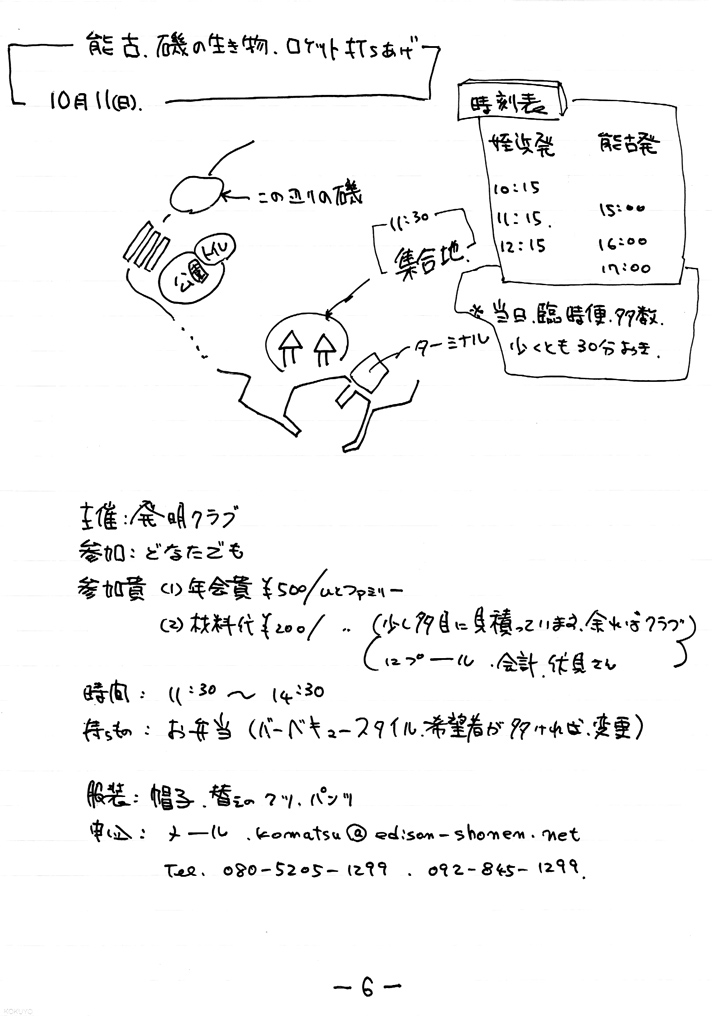 能古、磯の生き物、ロケット打ちあげ
10月11(日).
時刻表
姪浜発 能古発
10:15
11:15. 15:00
12:15 16:00
17:00
※当日、臨時便、多数.
少くとも30分おき.
この辺りの磯
11:30
集合地.
トイレ
公園
ターミナル
主催:発明クラブ
参加:どなたでも
参加費 (1) 年会費 ¥500/ひとファミリー
(2) 材料代 ¥200/ 〃 (少し多目に見積っています、余ればクラブ
にプール . 会計、伏見さん)
時間: 11:30 〜 14:30
持ちもの: お弁当 (バーベキュースタイル、希望者が多ければ、変更)
服装: 帽子、替えのクツ、パンツ
申込: メール .komatsu@edison-shonen.net
Tel. 080-5205-1299 . 092-845-1299.
-6-
KOKUYO